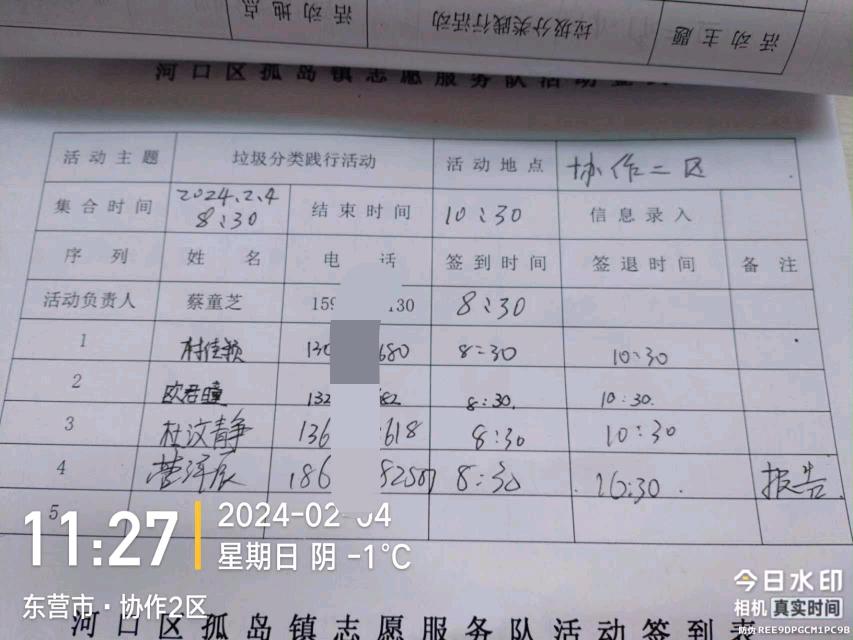 活动主题 垃圾分类践行活动 活动地点
河口区孤岛镇志愿服务队活动签到表
活动主题 垃圾分类践行活动 活动地点 协作二区
集合时间 2024.2.4 8:30 结束时间 10:30 信息录入
序列 姓名 电话 签到时间 签退时间 备注
活动负责人 蔡童芝 159 130 8:30
1 佳颖 130 680 8:30 10:30
2 欧君瞳 132 682 8:30. 10:30.
3 杜汶静 136 618 8:30 10:30
4 186 82507 8:30 10:30. 报告
5
11:27 2024-02-04
星期日 阴 -1℃
东营市·协作2区
今日水印
相机 真实时间
防伪 REE9DPGCM1PC9B
河口区孤岛镇志愿服务队活动签到表